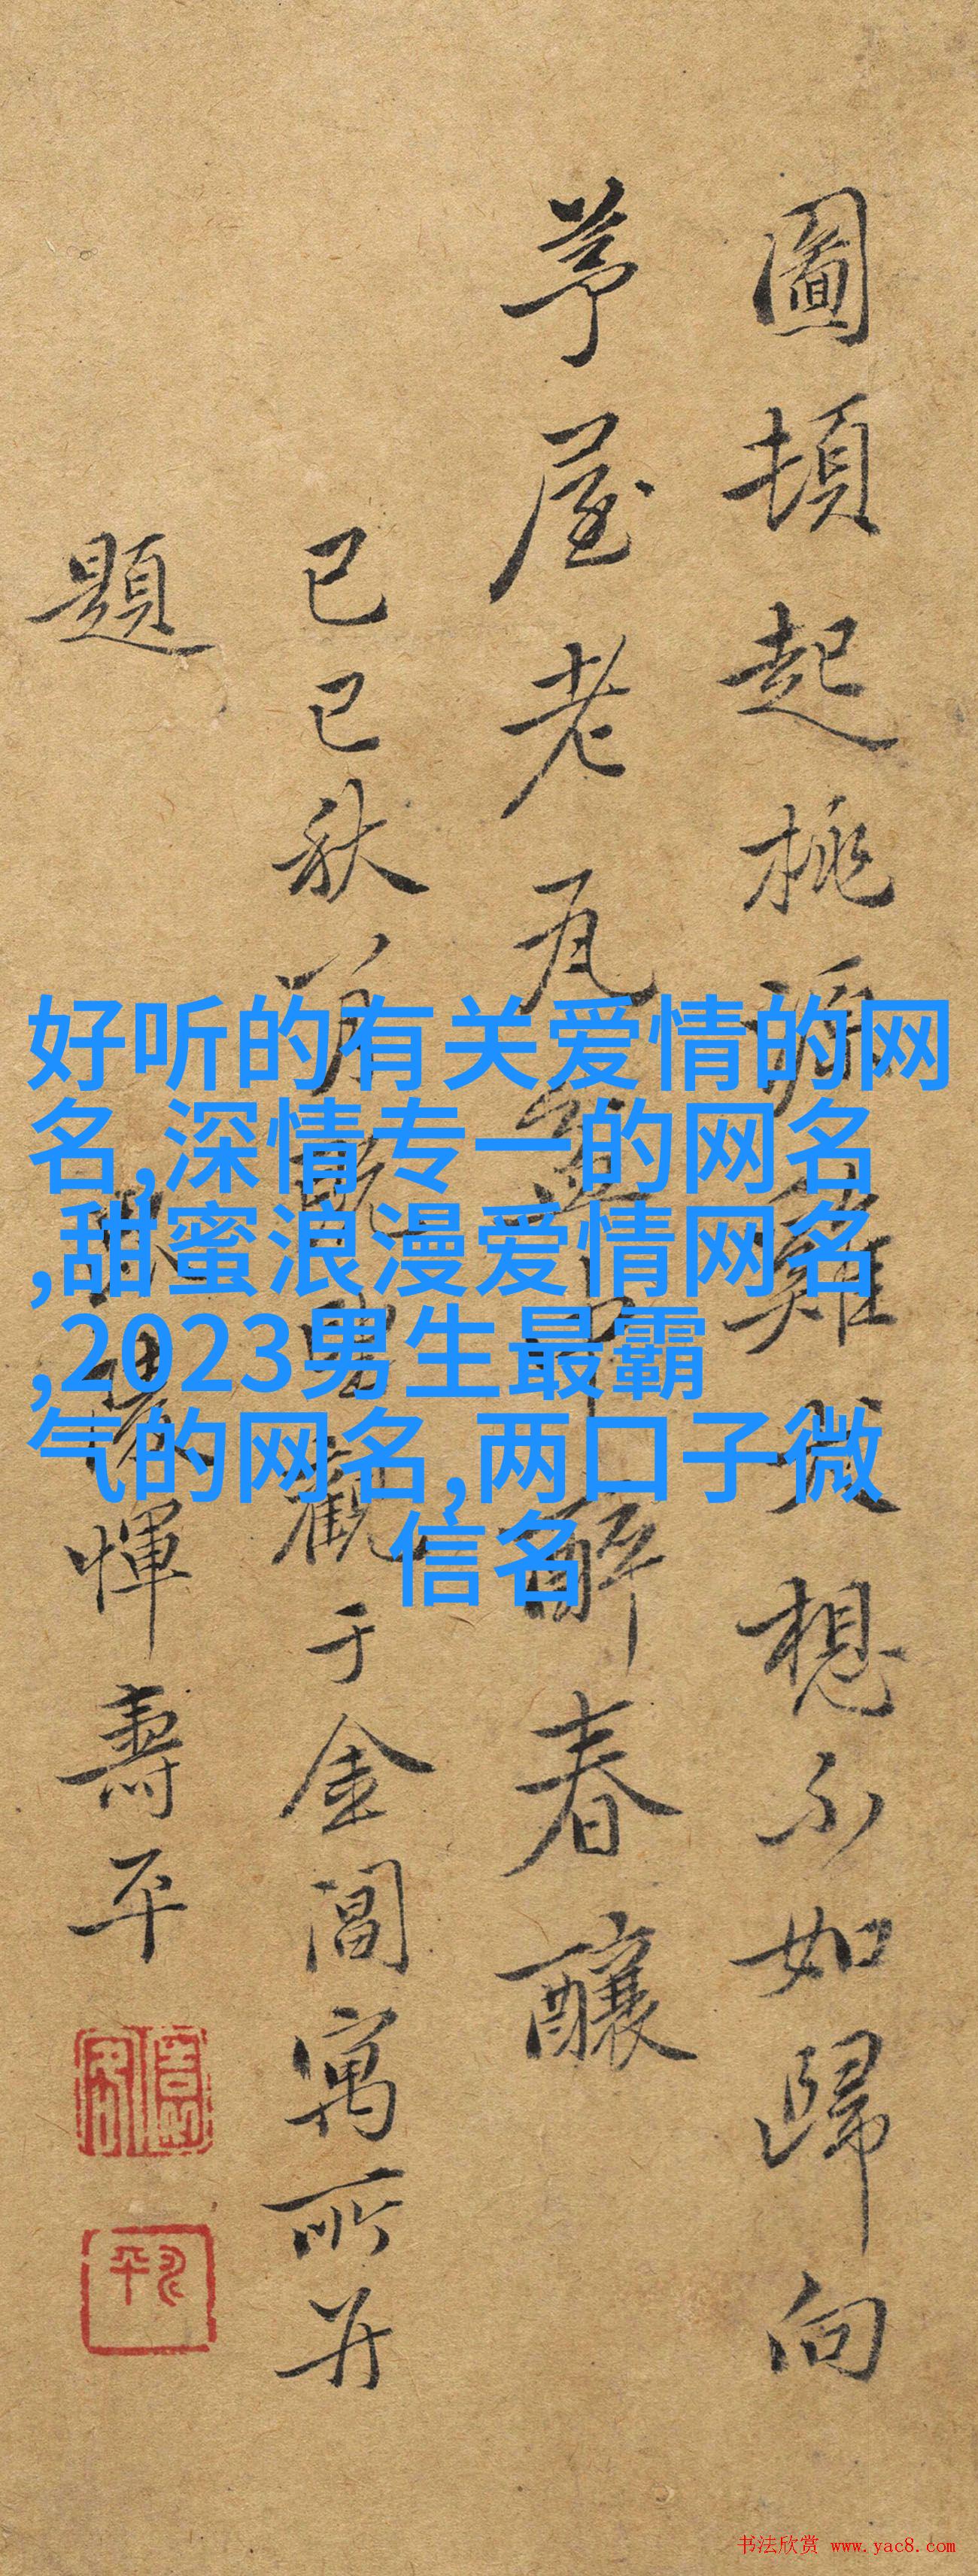 圖頓起桃源難想不如歸向
茅屋老瓦盆中醉春釀
己巳秋月觀于金閶寓所并
題
惲壽平
好听的有关爱情的网
名,深情专一的网名
,甜蜜浪漫爱情网名
,2023男生最霸
气的网名,两口子微
信名
书法欣赏 www.yac8.com